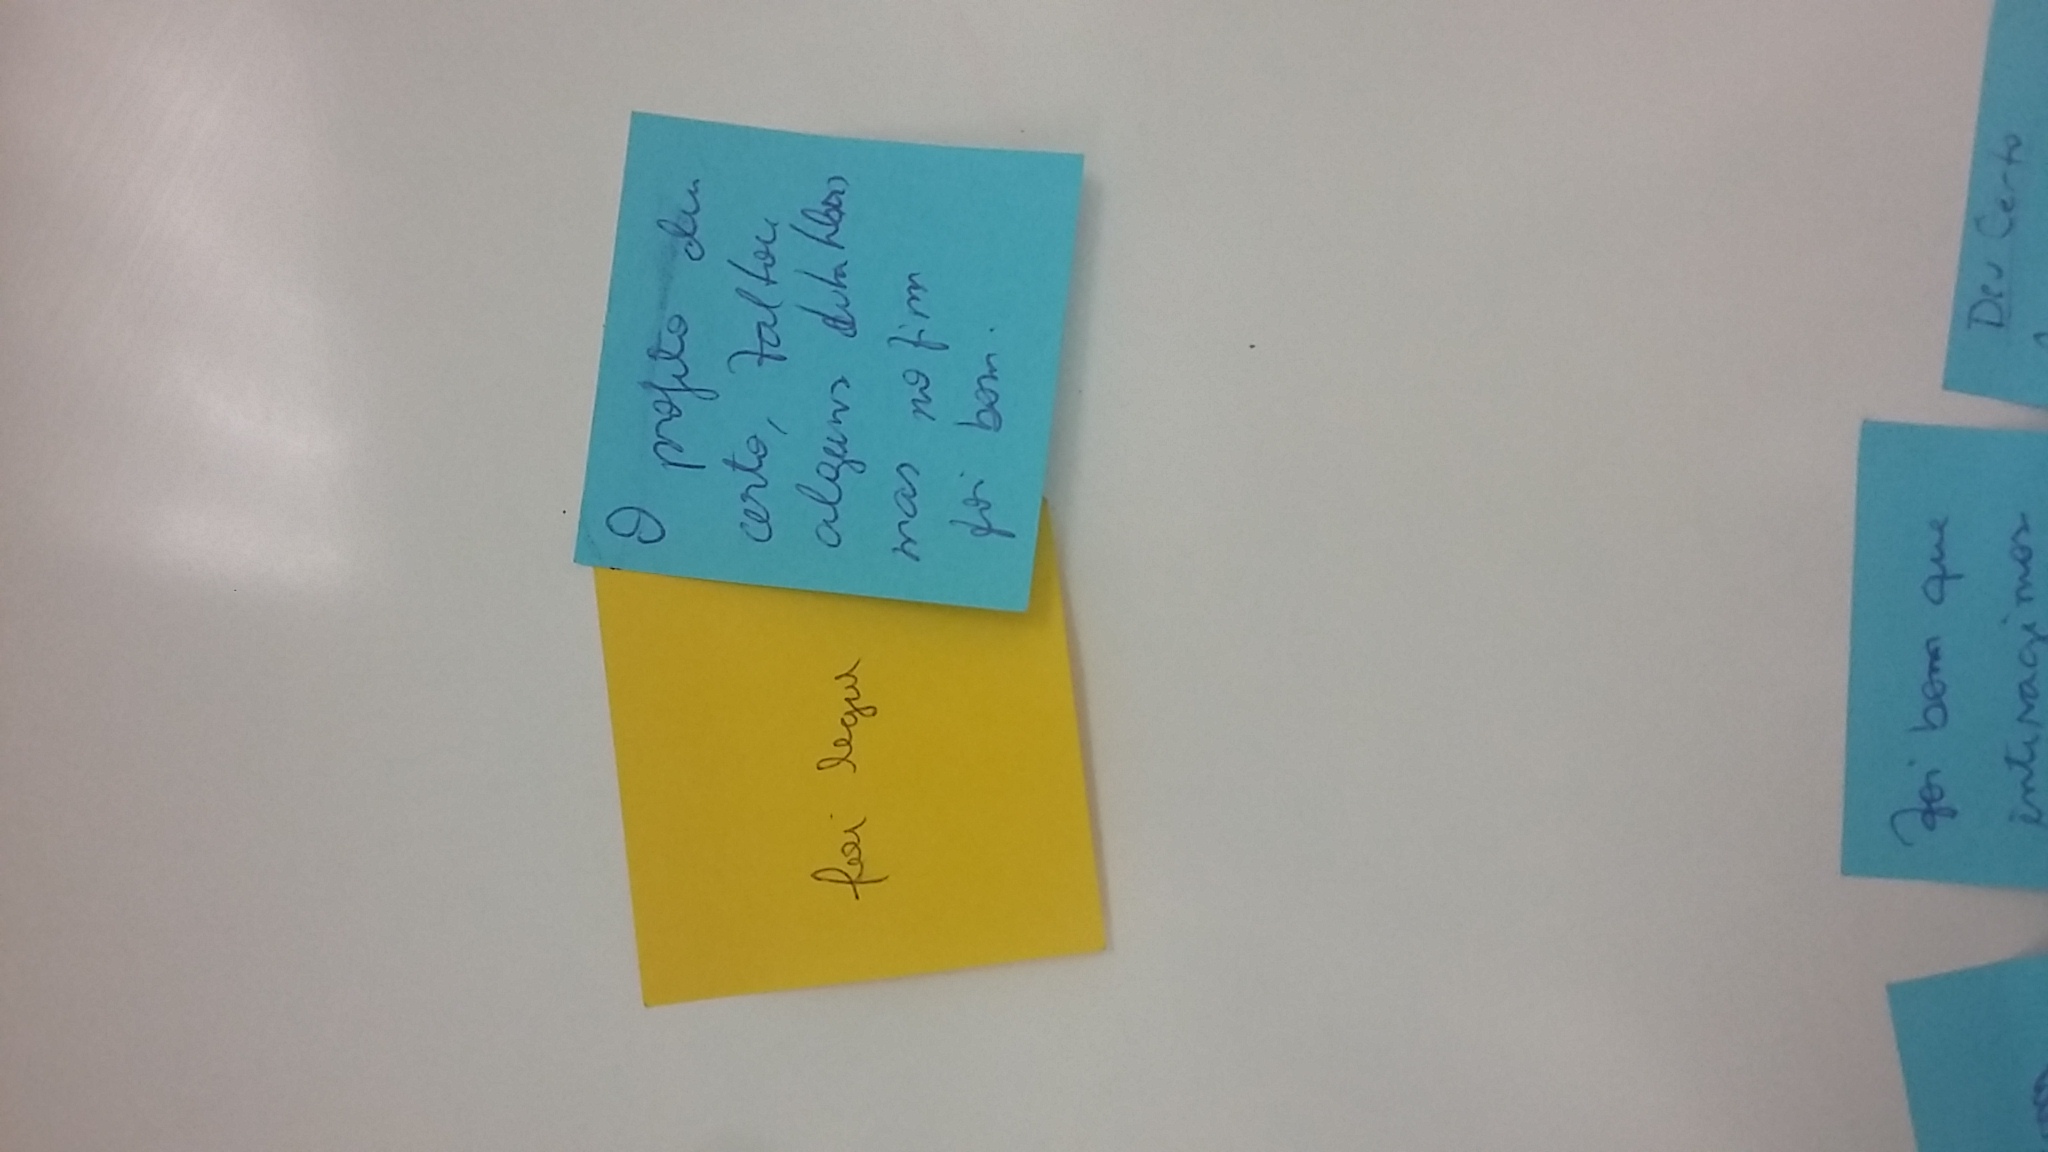 foi legal
O projeto deu
certo, faltou
alguns detalhes
mas no fim
foi bom.
Foi bom que
interagimos
Deu Certo